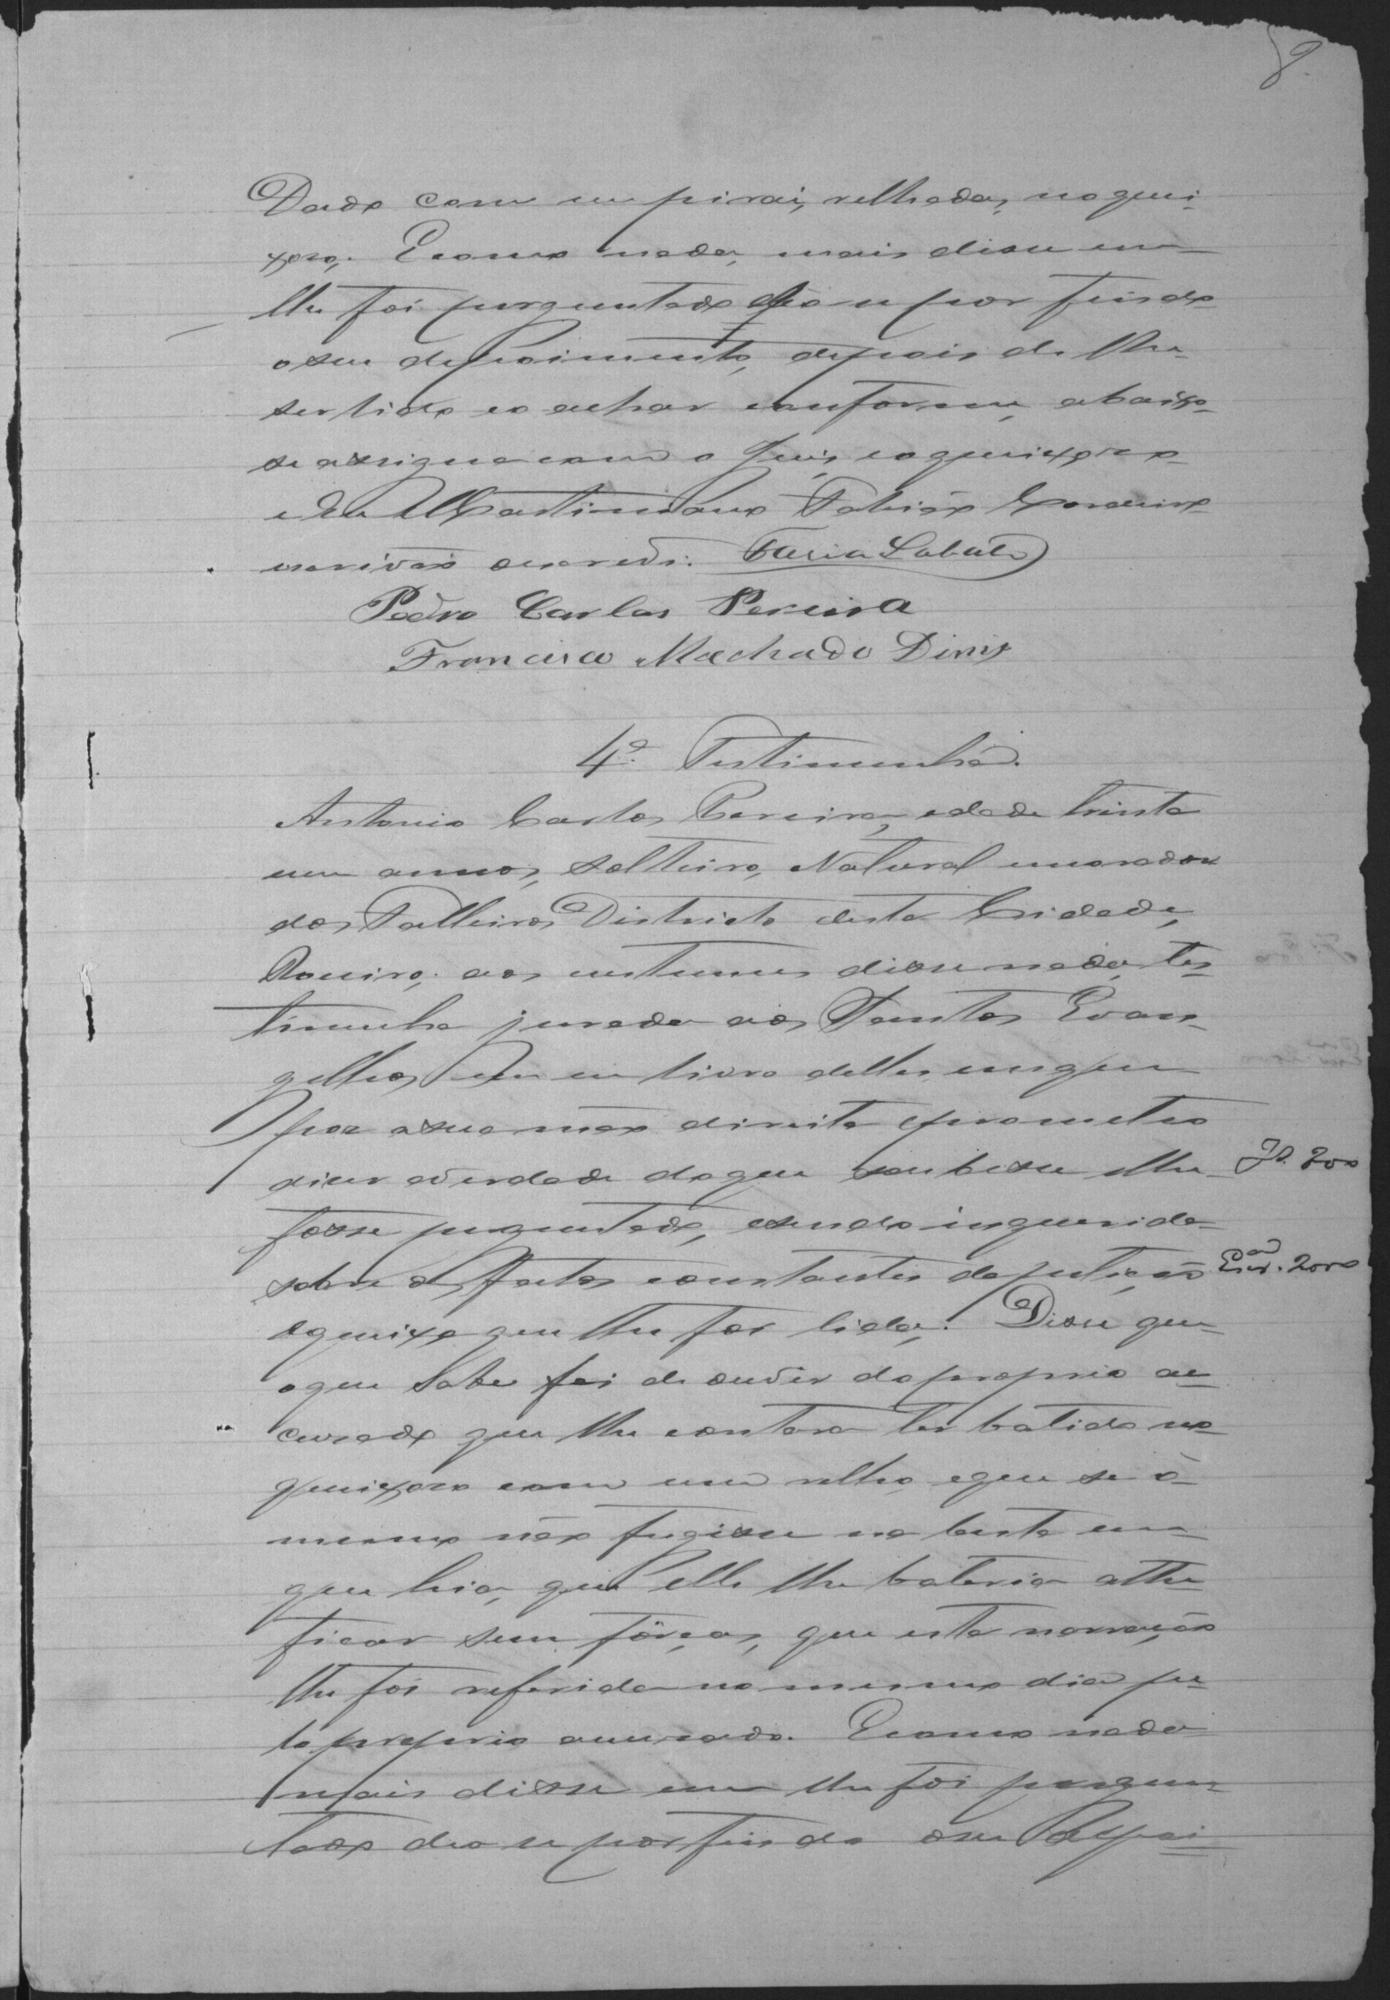 8
Dado com um pirai, relhadas, no quei-
xoso. E como nada mais disse nem
lhe foi perguntado deo se por findo
o seu depoimento, depois de lhe
ser lido e o achar conforme, abaixo
se assigna com o Juis, e o queixoso
e Eu Martiniano Fabião Cordeiro
escrivão escrevi. Faria Lobato
Pedro Carlos Pereira
Francisco Machado Dinis
4ª Testimunha.
Antonio Carlos Pereira, edade trinta
um annos, solteiro, Natural e morador
dos Districto desta Cidade,
aos custumes disse nada, tes-
timunha jurada aos Santos Evan-
gelhos em um livro delles em que
poz a sua mão direita e prometteo
diser a verdade do que soubesse e lhe
Js. 200
fosse perguntado, e sendo inquerida
sobre os factos constantes da petição
Escr. 2000
e queixa que lhe foi lida. Disse que
o que sabe foi de ouvir do proprio ac-
cusado que lhe contara ter batido no
queixoso com um relho e que se o
mesmo não fugisse na besta em
que hia, que elle lhe bateria athe
ficar sem fôrças, que esta narração
lhe foi referida no mesmo dia pe-
lo proprio accusado. E como nada
mais disse nem lhe foi pergun-
tado deo se por findo o seu depoi-